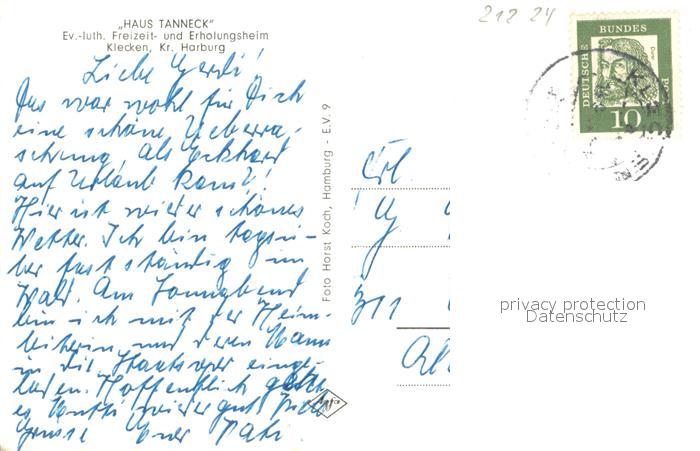 „HAUS TANNECK"
Ev.-luth. Freizeit- und Erholungsheim
Klecken, Kr. Harburg
Liebe Gerdi!
Das war wohl für Dich
eine schöne Ueberra-
schung, als Eckhard
auf Urlaub kam!
Hier ist wieder schönes
Wetter. Ich bin tagsü-
ber fast ständig im
Wald. Am Sonnabend
bin ich mit der Heim-
leiterin und deren Mann
in die Staatsoper einge-
laden. Hoffentlich geht
es Mutti wieder gut. Viele
Grüsse Euer Vati
Foto Horst Koch, Hamburg - E.V. 9
212 24
DEUTSCHE BUNDES PO
10
KLE
311
privacy protection
Datenschutz